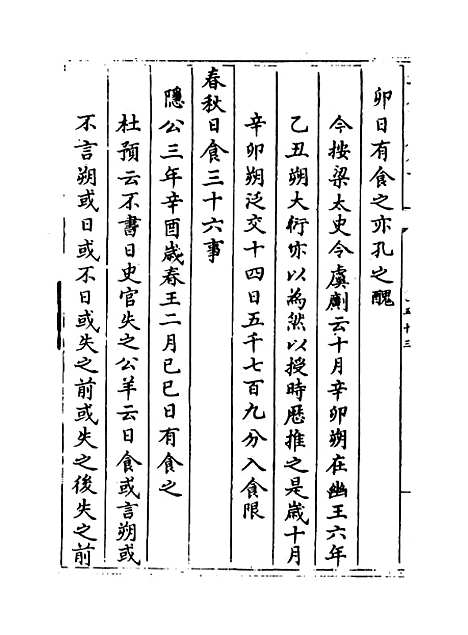 卯日有食之亦孔之醜
今按梁太史令虞𠠎云十月辛卯朔在幽王六年
乙丑朔大衍亦以為然以授時厯推之是歲十月
辛卯朔泛交十四日五千七百九分入食限
春秋日食三十六事
隱公三年辛酉歲春王二月已巳日有食之
杜預云不書日史官失之公羊云日食或言朔或
不言朔或日或不日或失之前或失之後失之前